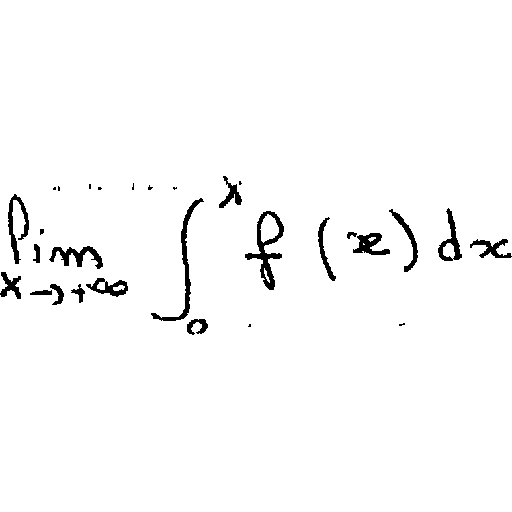 \lim_{X \to +\infty} \int_{0}^{X} f(x) dx